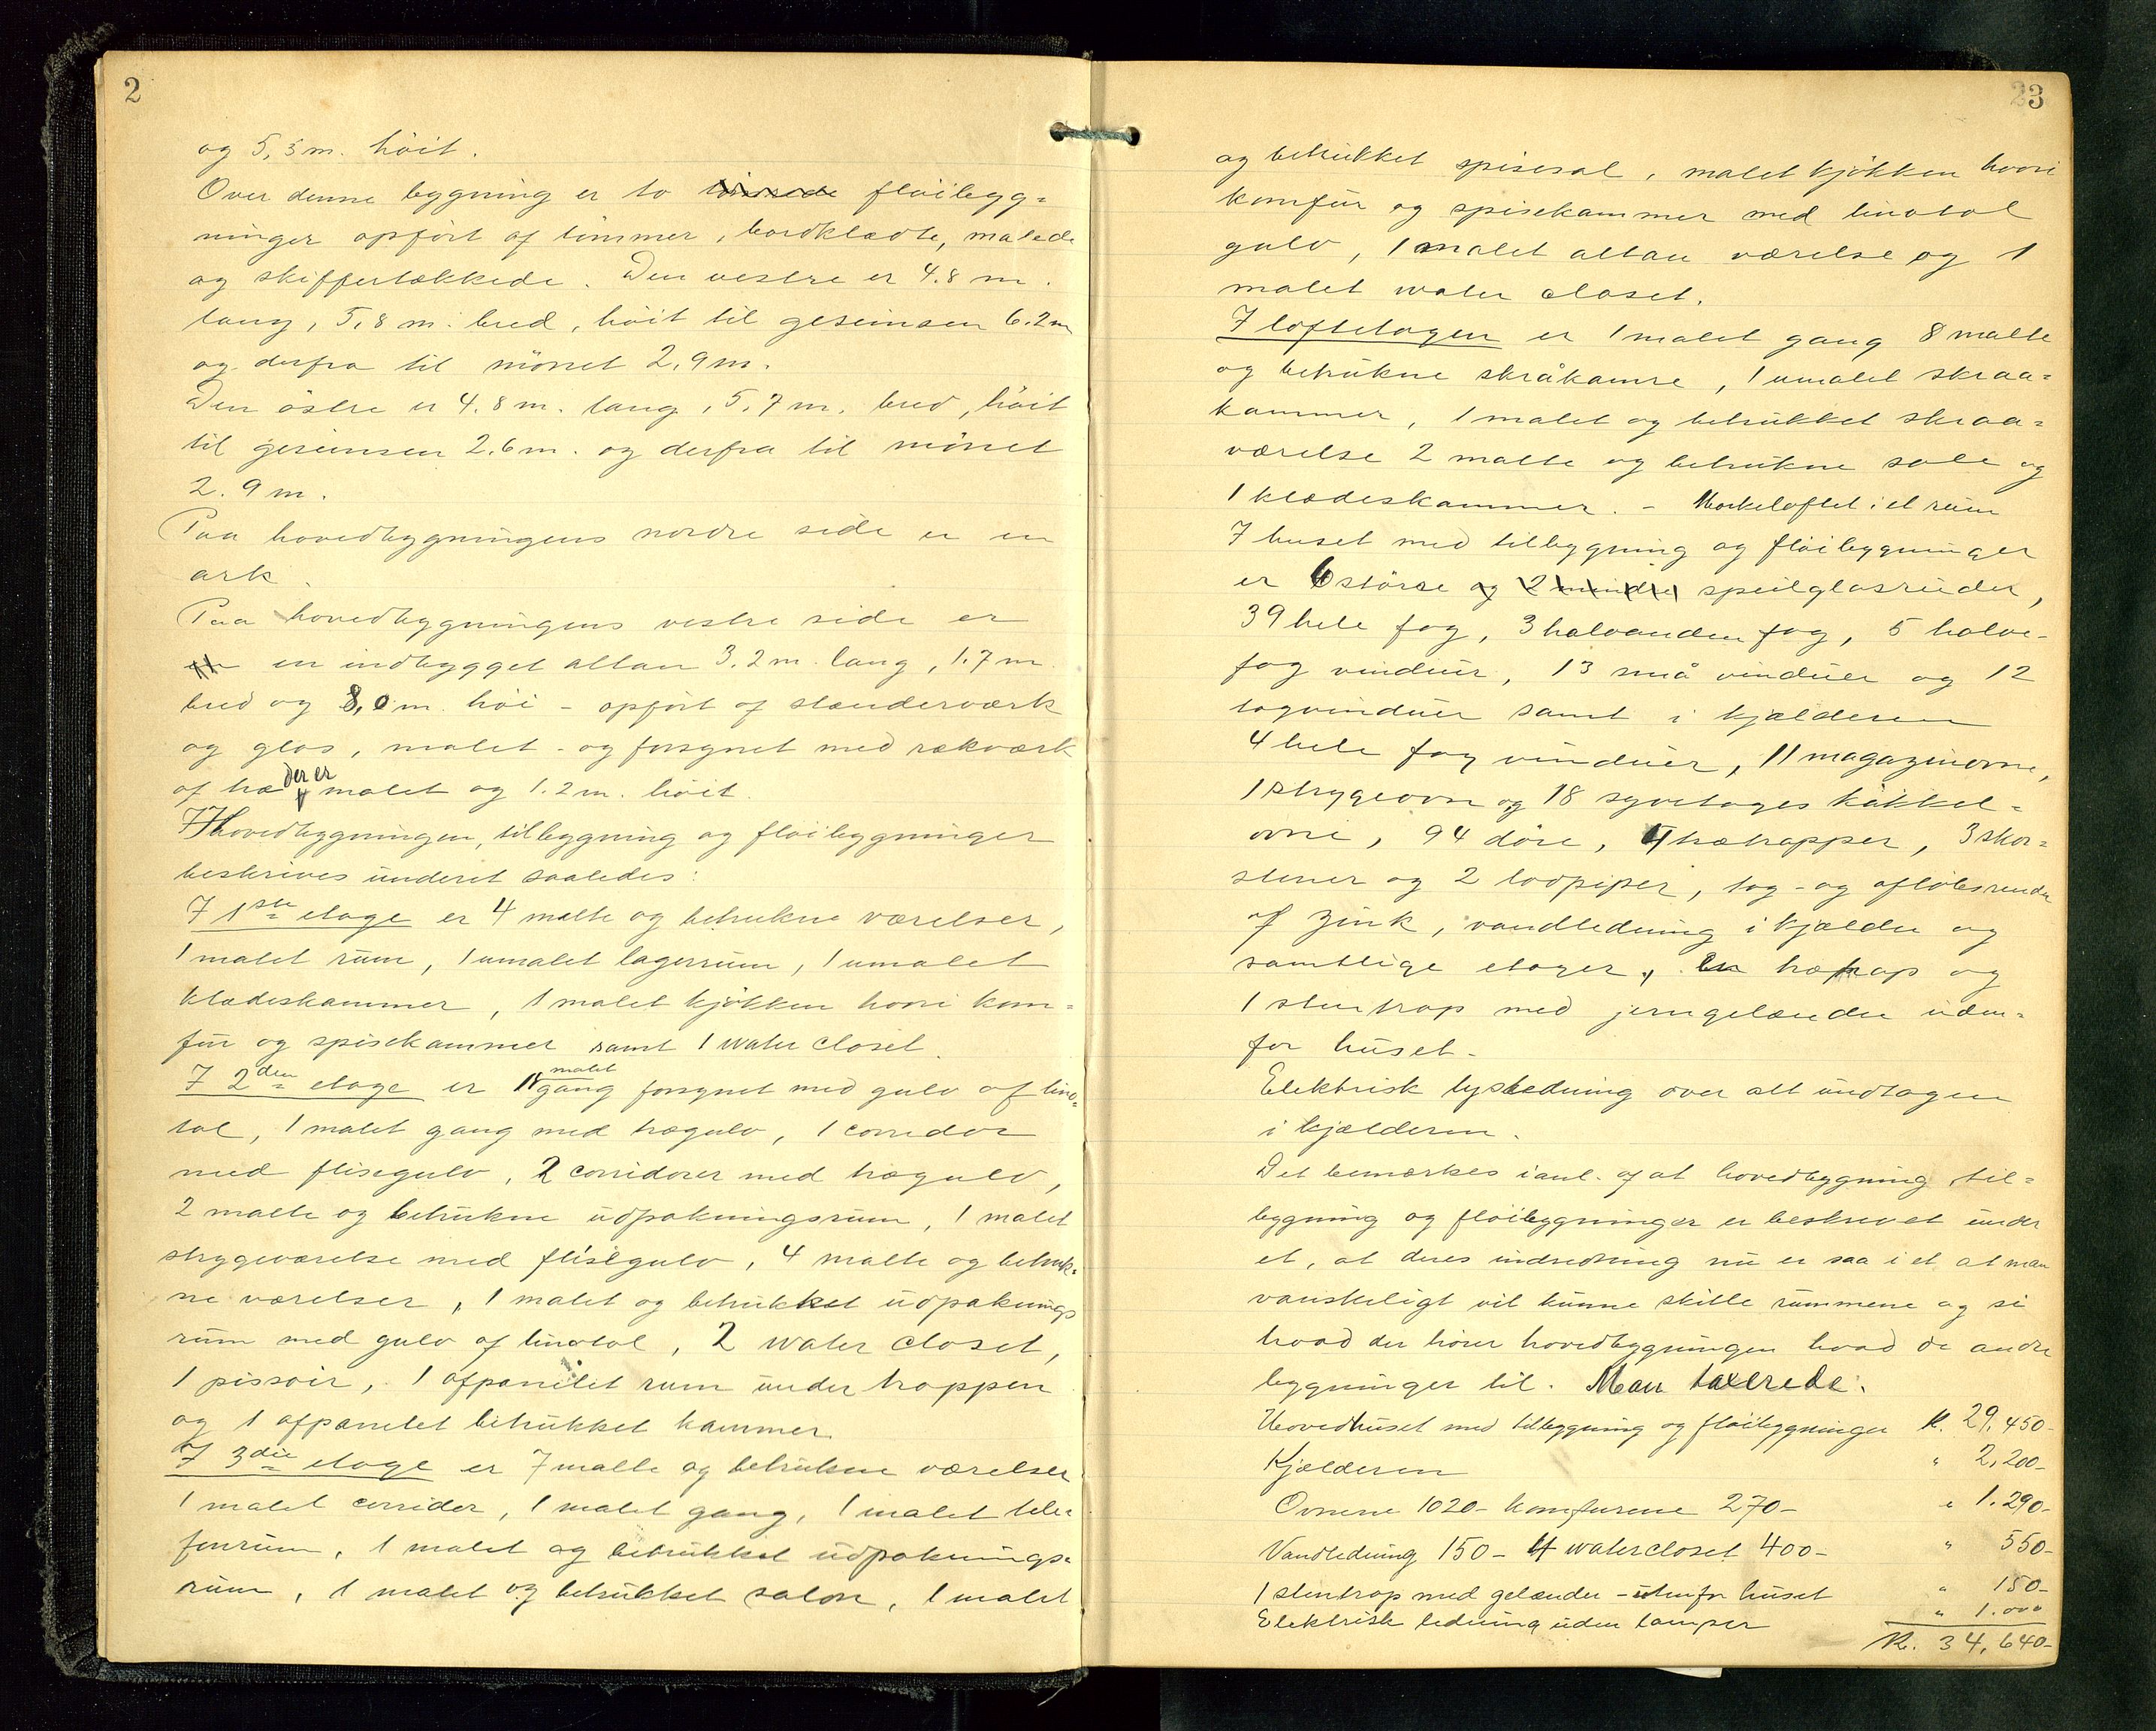 2
og 5,5 m. höit.
Over denne bygning er to flöibygg=
ninger opfört af tömmer, bordklædte, malede
og skiffertækkede. Den vestre er 4.8 m.
lang, 5,8 m. bred, höit til gesimsen 6.2 m
og derfra til mönet 2,9 m.
Den östre er 4.8 m. lang, 5,7 m. bred, höit
til gesimsen 2.6 m. og derfra til mönet
2.9 m.
Paa hovedbygningens nordre side er en
ark.
Paa hovedbygningens vestre side er
en indbygget altan 3.2 m. lang, 1.7 m.
bred og 8,0 m. höi - opfört af stenderværk
og glas, malet - og forsynet med rækværk
af træ der er malet og 1.2 m. höit.
I Hovedbygningen, tilbygning og flöibygninger
beskrives underet saaledes:
I 1ste etage er 4 malte og betrukne værelser,
1 malet rum, 1 umalet lagerrum, 1 umalet
klædeskammer, 1 malet kjökken hvori kom=
für og spisekammer samt 1 water closet.
I 2den etage er 1 malet gang forsynet med gulv af lino=
tol, 1 malet gang med trægulv, 1 corridor
med flisegulv, 2 corridorer med trægulv,
2 malte og betrukne udpakningsrum, 1 malet
strygeværelse med flisegulv, 4 malte og betruk=
ne værelser, 1 malet og betrukket udpaknings
rum med gulv af linotol, 2 water closet,
1 pissoir, 1 afpanelet rum under trappen
og 1 afpanelet betrukket kammer.
I 3die etage er 7 malte og betrukne værelser
1 malet corridor, 1 malet gang, 1 malet tele=
fonrum, 1 malet og betrukket udpaknings=
rum, 1 malet og betrukket salon, 1 malet
23
og betrukket spisesal, malet kjökken hvori
komfür og spisekammer med linotol
gulv, 1 malet altan værelse og 1
malet water closet.
I loftetagen er 1 malet gang 8 malte
og betrukne skråkamre, 1 umalet skraa=
kammer, 1 malet og betrukket skraa=
værelse 2 malte og betrukne sale og
1 klædeskammer. - Mörkeloftet i et rum
I huset med tilbygning og flöibygninger
er 6 större og 2 mindre speilglasruder,
39 hele fag, 3 halvanden fag, 5 halve-
fag vinduer, 13 små vinduer og 12
tagvinduer samt i kjælderen
4 hele fag vinduer, 11 magazinovne,
1 strygeovn og 18 syvetages kakkel=
ovne, 94 döre, 4 trætrapper, 3 skor=
stener og 2 lodpiper, tag- og aflöbsrender
af zink, vandledning i kjælder og
samtlige etager, En trætrap og
1 stentrap med jerngelænder uden=
for huset.
Elektrisk lysledning over alt undtagen
i kjælderen.
Det bemærkes i anl. af at hovedbygning, til=
bygning og flöibygninger er beskrevet under
et, at deres indredning nu er saa i et at man
vanskeligt vil kunne skille rummene og si
hvad der hörer hovedbygningen hvad de andre
bygninger til. Man taxerede.
Hovedhuset med tilbygning og flöibygninger K. 29,450-
Kjælderen " 2,200-
Ovnene 1020- komfurene 270- " 1.290-
Vandledning 150- 4 watercloset 400- " 550-
1 stentrap med gelænder - utenfor huset " 150-
Elektrisk ledning uden lamper " 1.000
K. 34,640-